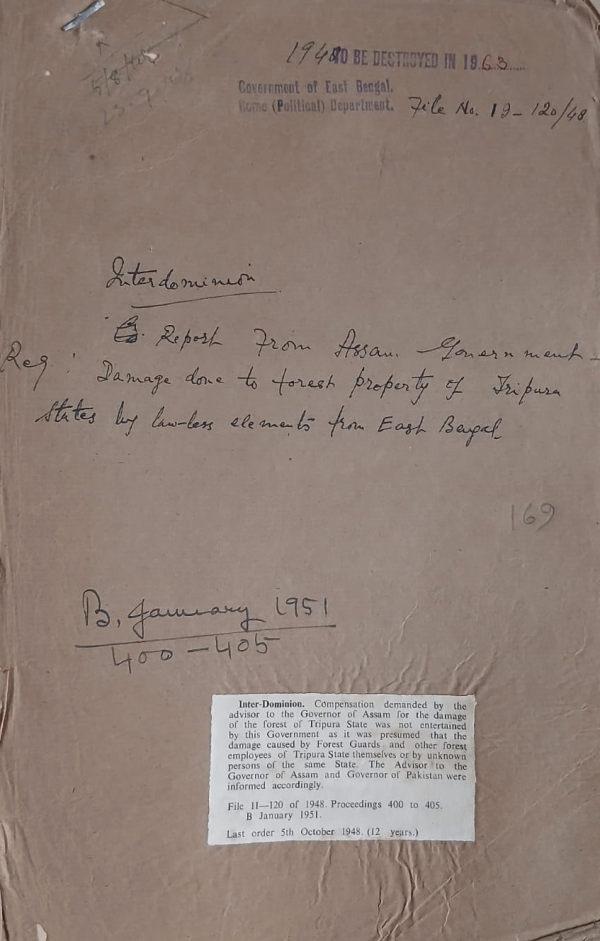 1948 TO BE DESTROYED IN 1963
Government of East Bengal.
Home (Political) Department. File No. 19-120/48
Interdominion
Report From Assam Government -
Reg: Damage done to forest property of Tripura
States by law-less elements from East Bengal
169
B, January 1951
400-405
Inter-Dominion. Compensation demanded by the
advisor to the Governor of Assam for the damage
of the forest of Tripura State was not entertained
by this Government as it was presumed that the
damage caused by Forest Guards and other forest
employees of Tripura State themselves or by unknown
persons of the same State. The Advisor to the
Governor of Assam and Governor of Pakistan were
informed accordingly.
File 11—120 of 1948. Proceedings 400 to 405.
B January 1951.
Last order 5th October 1948. (12 years.)